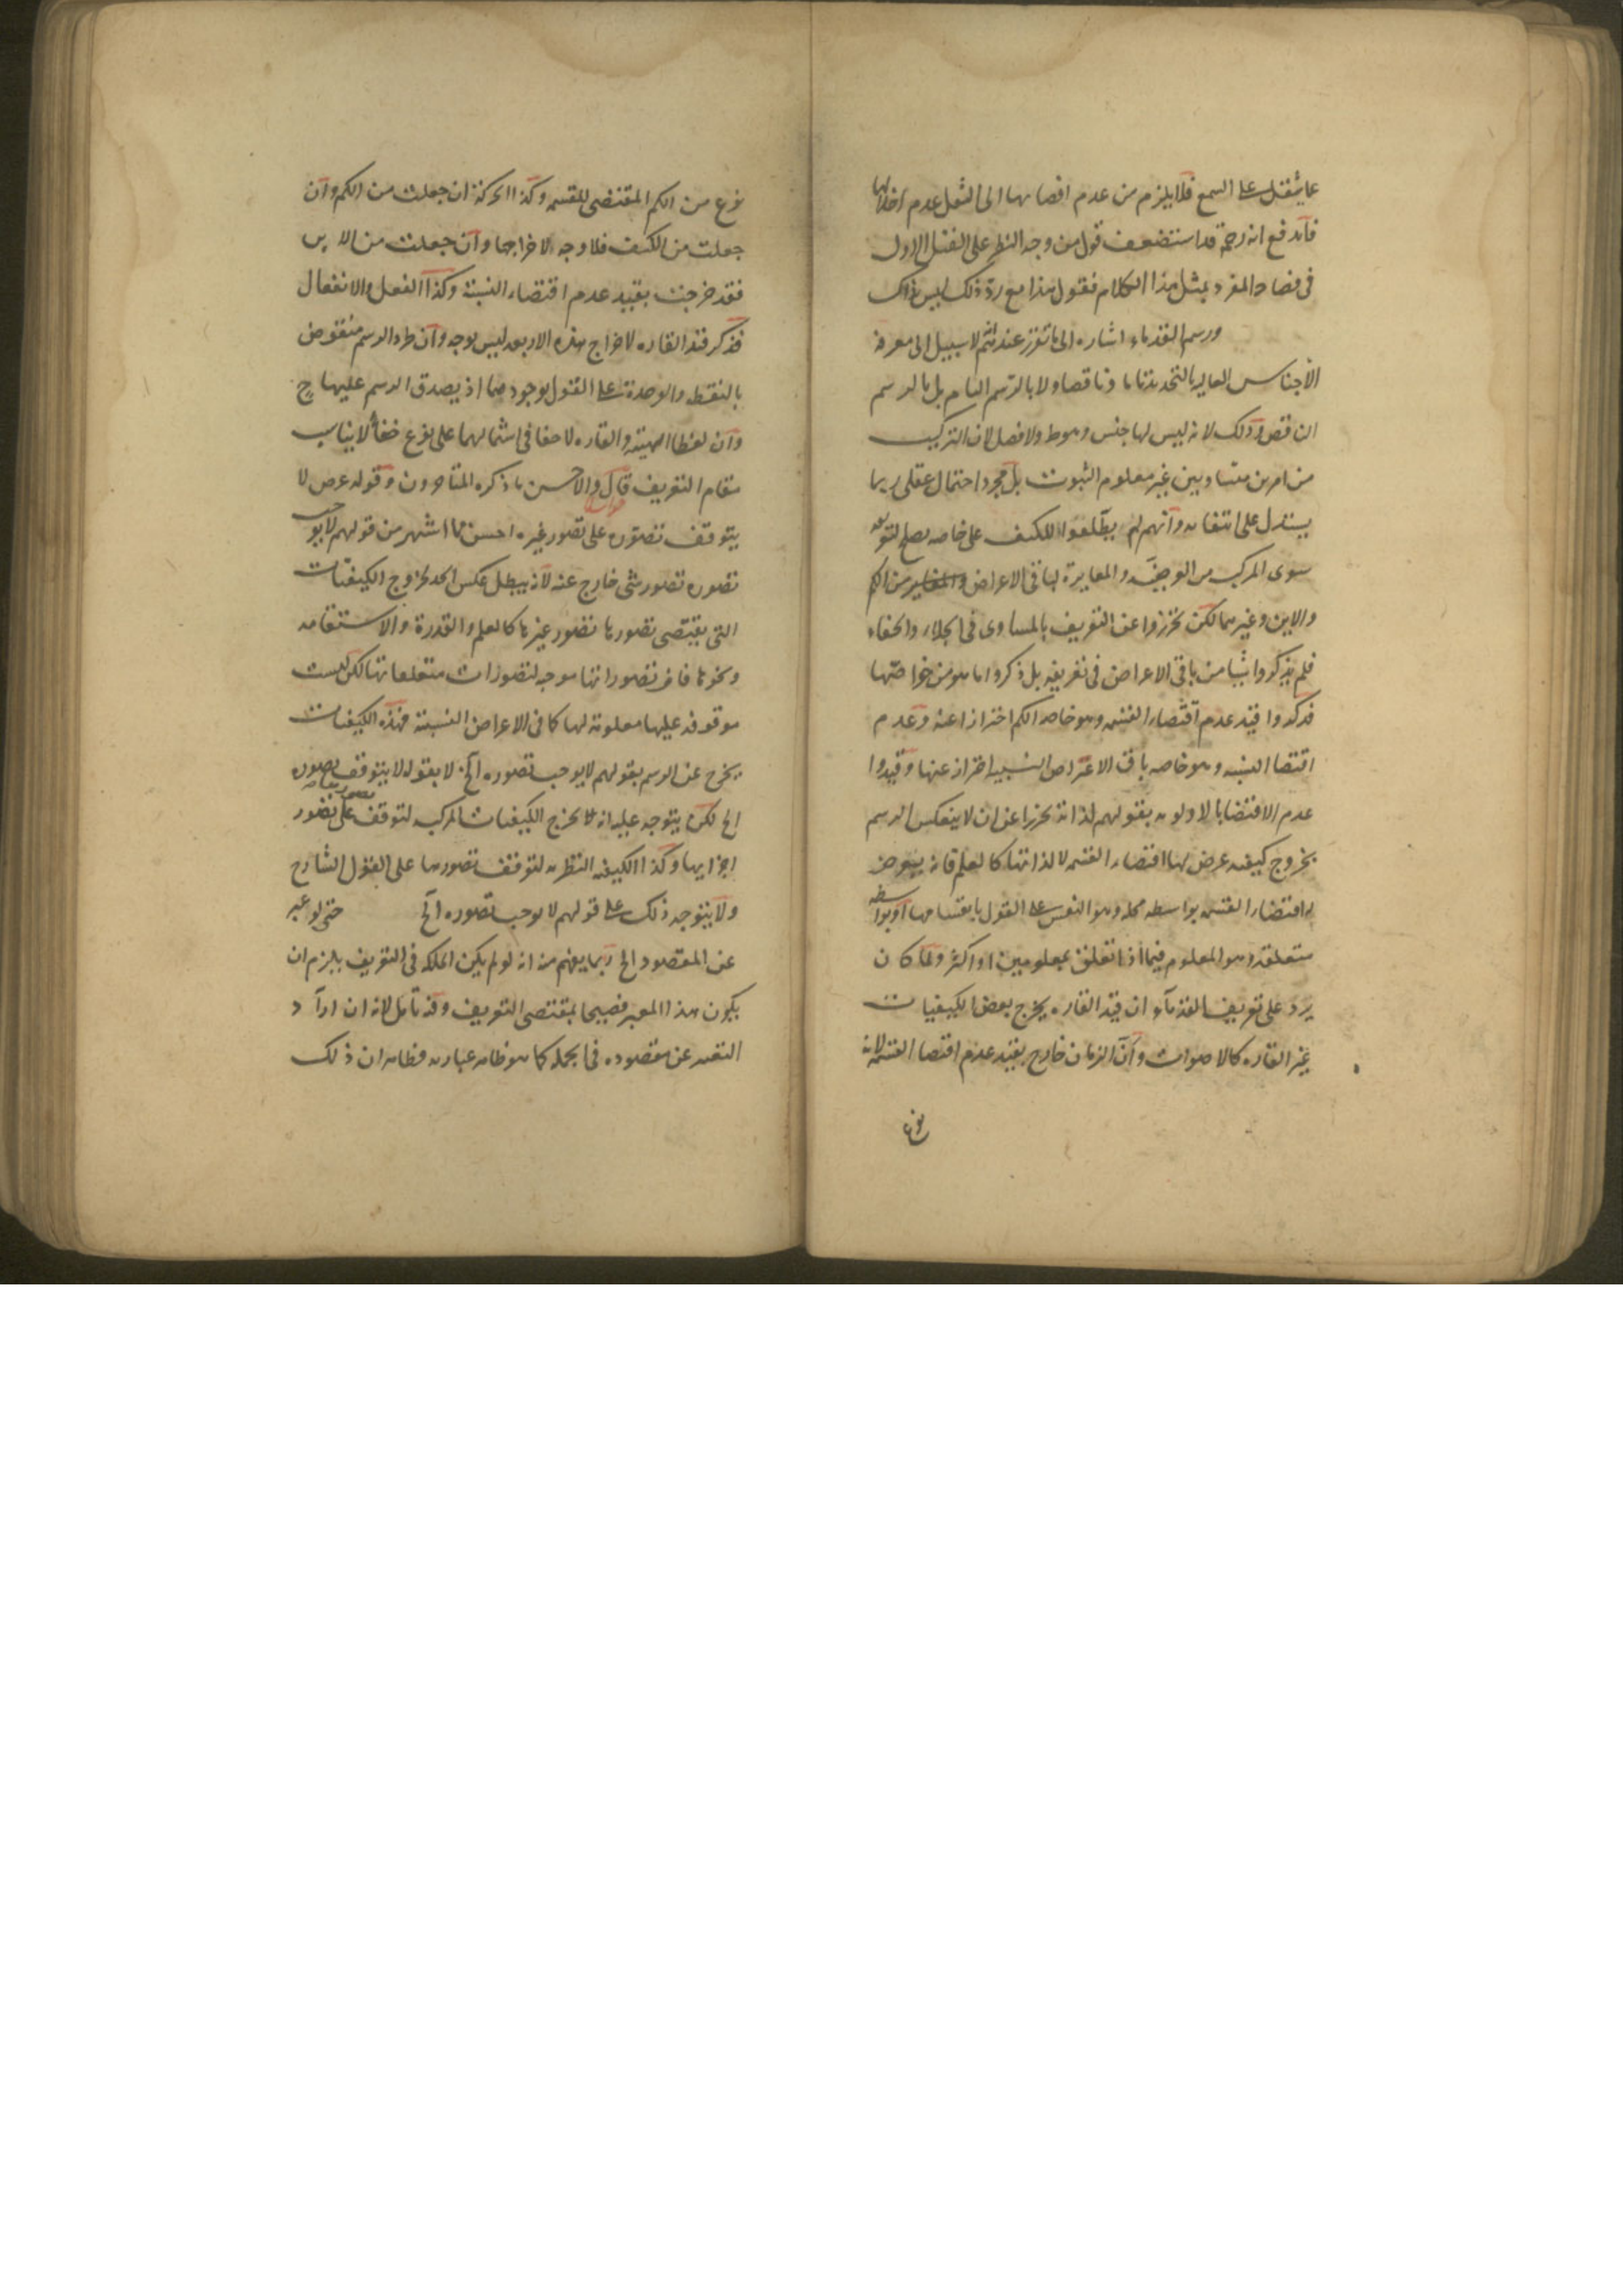 عما يثقل على السمع فلا يلزم من عدم افضائها الى الثقل عدم اخلالها
فاندفع انه رحمه قد استضعف قول من وجه النظر على القيل الاول
فى فصاحة المفرد بمثل هذا الكلام فقوله هذا مع رد ذلك ليس ذاك
ورسم القدماء اشارة الى ما تقرر عندهم لا سبيل الى معرفة
الاجناس العالية بالتحديد تاما وناقصا ولا بالرسم التام بل بالرسم
الناقص وذلك لانه ليس لها جنس وهو ط ولا فصل لان التركيب
من امرين متساويين غير معلوم الثبوت بل مجرد احتمال عقلى ربما
يستدل على انتفائه وانهم لم يطلعوا للكيف على خاصه يصلح لتعريفه
سوى المركب من العرضيه والمغايرة لباقى الاعراض من الكم
والاين وغيرهما لكن تحرزوا عن التعريف بالمساوى فى الجلاء والخفاء
فلم يذكروا شيا من باقى الاعراض فى تعريفه بل ذكروا ما هو من خواصها
فذكروا قيد عدم اقتضاء القسمه وهو خاصه الكم احترازا عنه وعدم
اقتضا النسبه وهو خاصه باقى الاعراض النسبيه احتراز عنها وقيدوا
عدم الاقتضا بالاوليه بقولهم لذاته تحرزا عن ان لا ينعكس الرسم
بخروج كيفيه عرض لها اقتضاء القسمه لا لذاتها كالعلم فانه يعرض
له اقتضاء القسمه بواسطه محله وهو النفس على القول بانقسامها او بواسطه
متعلقه وهو المعلوم فيما اذا تعلق بمعلومين او اكثر ولما كان
يرد على تعريف القدماء ان قيد القاره يخرج بعض الكيفيات
غير القاره كالاصوات وان الزمان خارج بقيد عدم اقتضا القسمه لانه
نوع
نوع من الكم المقتضى للقسمه وكذا الحركة ان جعلت من الكم وان
جعلت من الكيف فلا وجه لاخراجها وان جعلت من الاين
فقد خرجت بقيد عدم اقتضاء النسبة وكذا الفعل والانفعال
فذكر قيد القاره لاخراج هذه الاربعه ليس بوجه وان طرد الرسم منقوض
بالنقطه والوحدة على القول بوجودهما اذ يصدق الرسم عليها ح
وان لفظا الهيئة والقاره لا خفا فى اشتمالهما على نوع خفاء لا يناسب
مقام التعريف قال والاحسن ما ذكره المتاخرون وقوله عرض لا
يتوقف تصوره على تصور غيره احسن مما اشتهر من قولهم لا يوجب
تصوره تصور شى خارج عنه لانه يبطل عكس الحد لخروج الكيفيات
التى يقتضى تصورها تصور غيرها كالعلم والقدرة والاستقامه
ونحوها فان تصوراتها موجبه لتصورات متعلقاتها لكن ليست
موقوفه عليها معلوله لها كما فى الاعراض النسبية فهذه الكيفيات
يخرج عن الرسم بقولهم لا يوجب تصوره الخ لا بقوله لا يتوقف تصوره
الخ لكن يتوجه عليه انه يخرج الكيفيات المركبه لتوقف تصورها على تصور
اجزايها وكذا الكيفيه النظريه لتوقف تصورها على القول الشارح
ولا يتوجه ذلك على قولهم لا يوجب تصوره الخ حتى لو عبر
عن المقصود الخ ربما يفهم منه انه لو لم يكن الملكه فى التعريف يلزم ان
يكون هذا المعبر فصيحا بمقتضى التعريف وفيه تامل لانه ان اراد
التعبير عن مقصوده فى الجمله كما هو ظاهر عبارته فظاهر ان ذلك